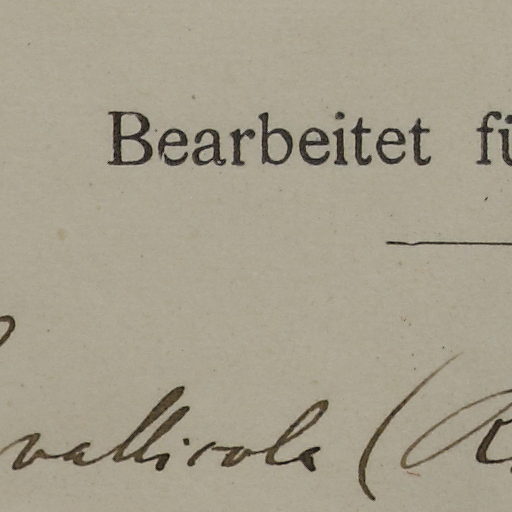 Bearbeitet fü
vallicola (R